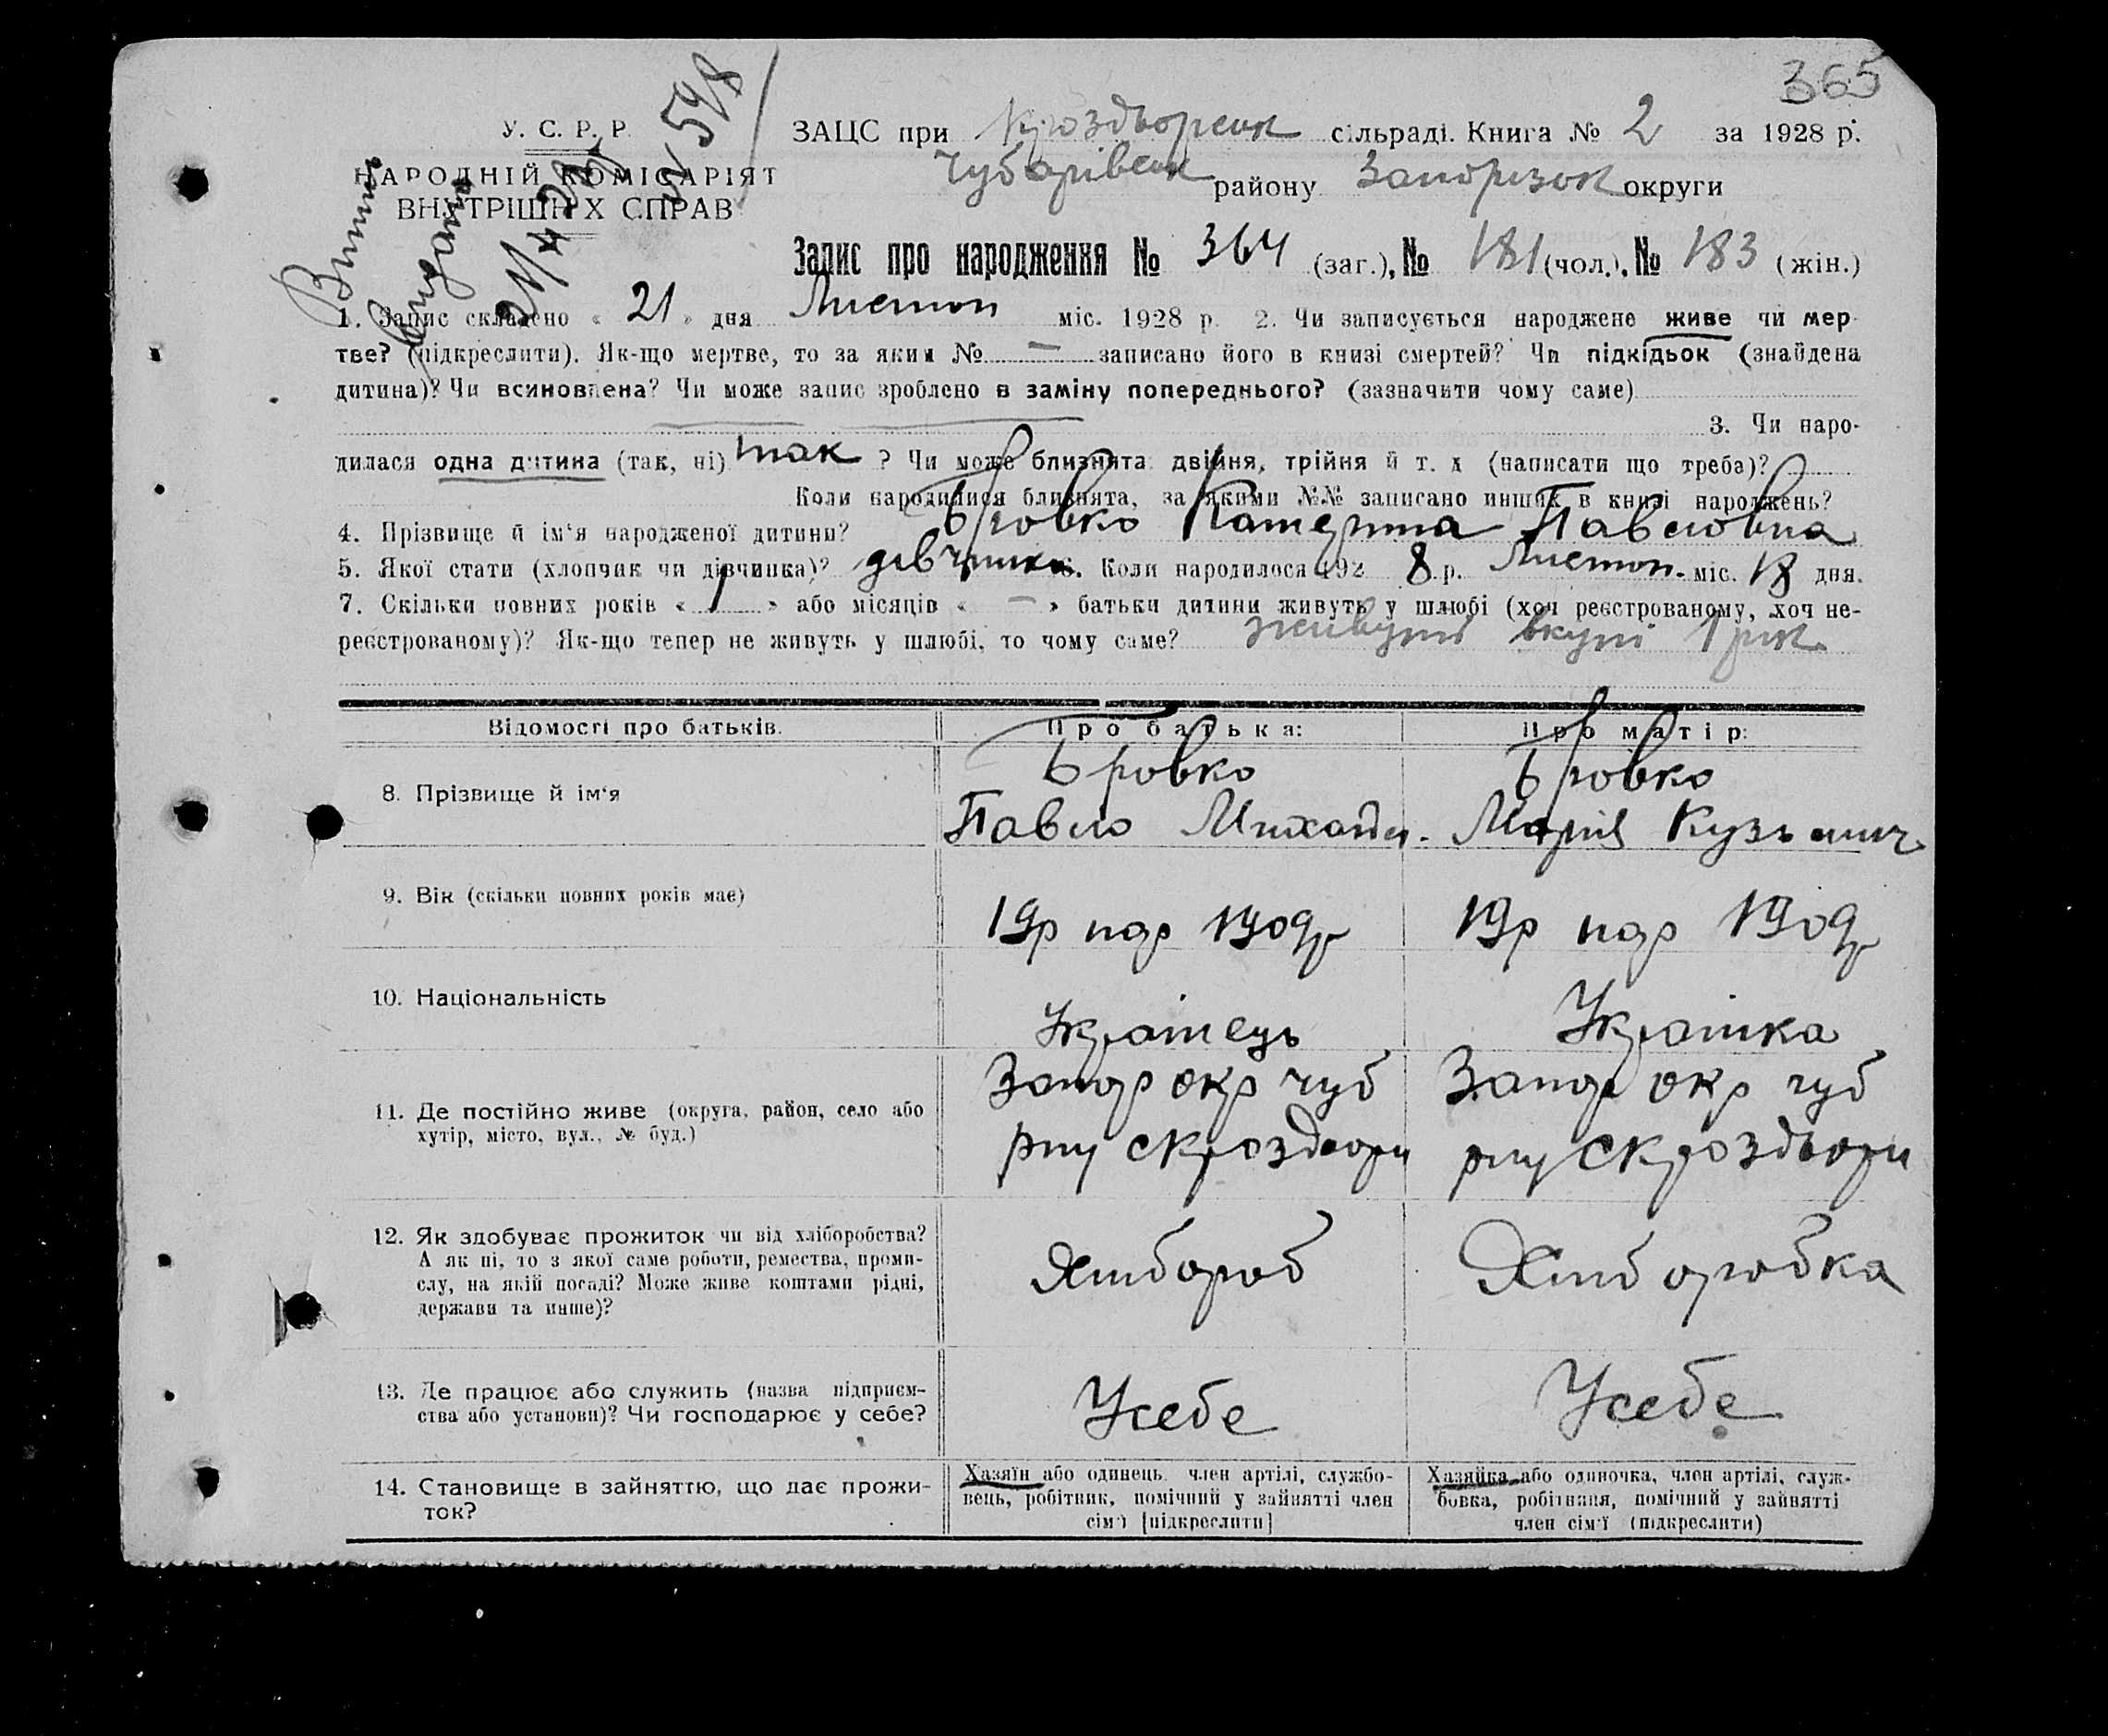 365
У. С. Р. Р.
НАРОДНІЙ КОМІСАРІЯТ
ВНУТРІШНІХ СПРАВ
ЗАЦС при Кроздворськ сільраді. Книга № 2 за 1928 р.
Чубарівськ району Запорізьк округи
Запис про народження № 364 (заг.), № 181 (чол.), № 183 (жін.)
1. Запис складено « 21 » дня Листоп міс. 1928 р. 2. Чи записується народжене живе чи мер-
тве? (підкреслити). Як-що мертве, то за яким № — записано його в книзі смертей? Чи підкідьок (знайдена
дитина)? Чи всиновлена? Чи може запис зроблено в заміну попереднього? (зазначити чому саме)
3. Чи наро-
дилася одна дитина (так, ні) так ? Чи може близнята: двійня, трійня й т. д (написати що треба)?
Коли народилися близнята, за якими №№ записано инших в книзі народжень?
4. Прізвище й ім'я народженої дитини? Бровко Катерина Павловна
5. Якої стати (хлопчик чи дівчинка)? дівчинка 6. Коли народилося 192 8 р. Листоп. міс. 18 дня.
7. Скільки повних років « 1 » або місяців « — » батьки дитини живуть у шлюбі (хоч реєстрованому, хоч не-
реєстрованому)? Як-що тепер не живуть у шлюбі, то чому саме? живуть вкупі 1 рік
Відомості про батьків. Про батька: Про матір:
8. Прізвище й ім'я Бровко Павло Михайл. Бровко Марія Кузьмич
9. Вік (скільки повних років має) 19р нар 1909р 19р нар 1909р
10. Національність Українець Українка
11. Де постійно живе (округа, район, село або
хутір, місто, вул., № буд.)
Запор окр Чуб
рну с Кроздвори
Запор окр Чуб
рну с Кроздвори
12. Як здобуває прожиток чи від хліборобства?
А як ні, то з якої саме роботи, ремества, проми-
слу, на якій посаді? Може живе коштами рідні,
держави та инше)?
Хлибороб Хлиборобка
13. Де працює або служить (назва підприєм-
ства або установи)? Чи господарює у себе?
Усебе Усебе
14. Становище в зайняттю, що дає прожи-
ток?
Хазяїн або одинець, член артілі, службо-
вець, робітник, помічний у зайнятті член
сім'ї [підкреслити]
Хазяйка або одиночка, член артілі, служ-
бовка, робітниця, помічний у зайнятті
член сім'ї (підкреслити)